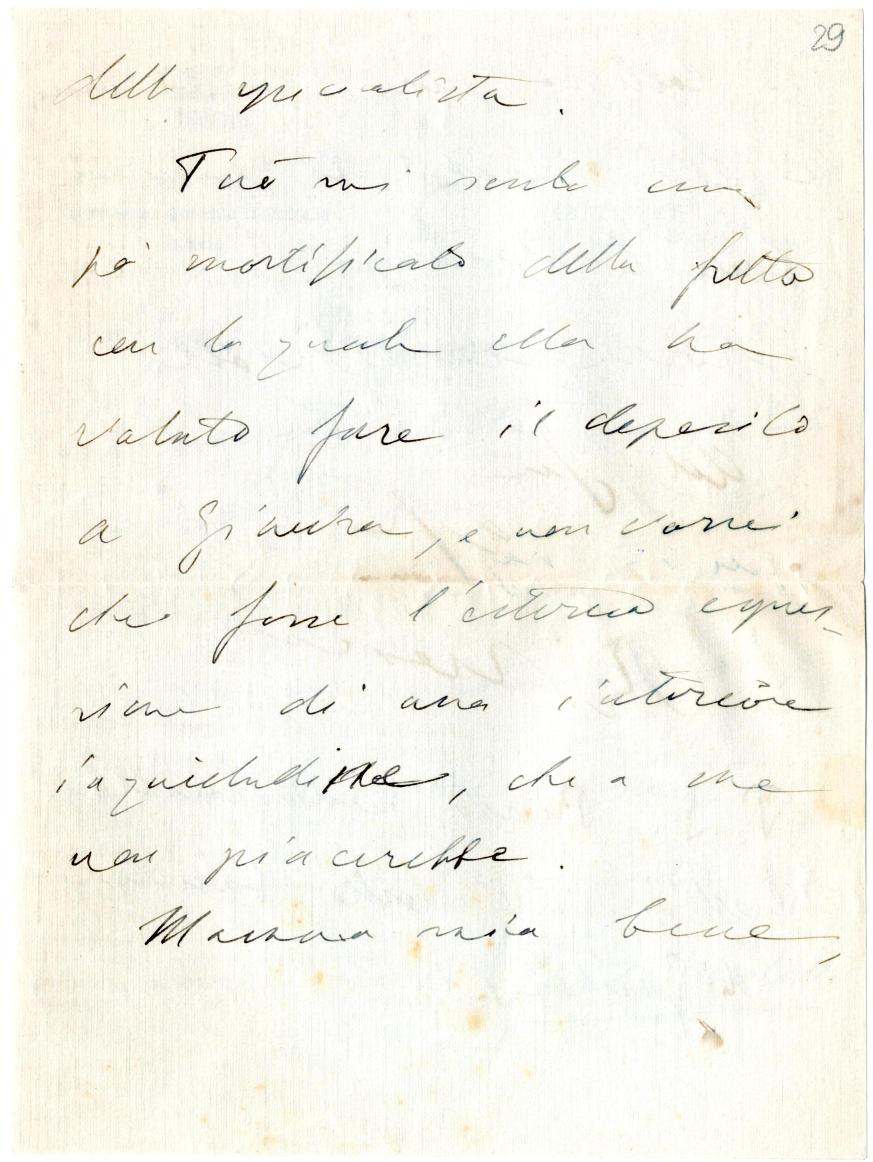 29
dello specialista.
Però mi sento un
pò mortificato della fretta
con la quale ella ha
voluto fare il deposito
a Ginevra, e non vorrei
che fosse l'esterna espres-
sione di una interiore
inquietudine, che a me
non piacerebbe.
Mamma mia bene,